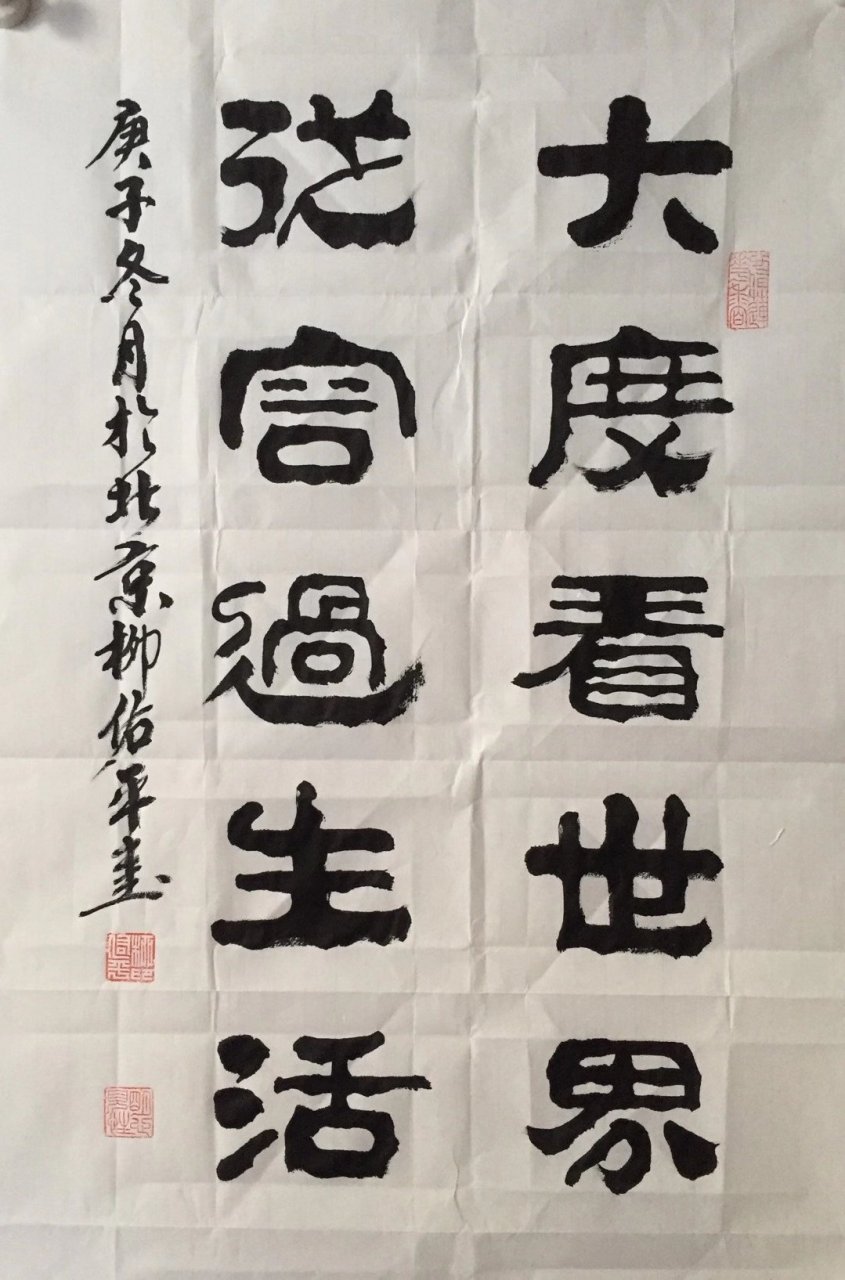 大度看世界
從容過生活
庚子冬月於北京柳佑平書